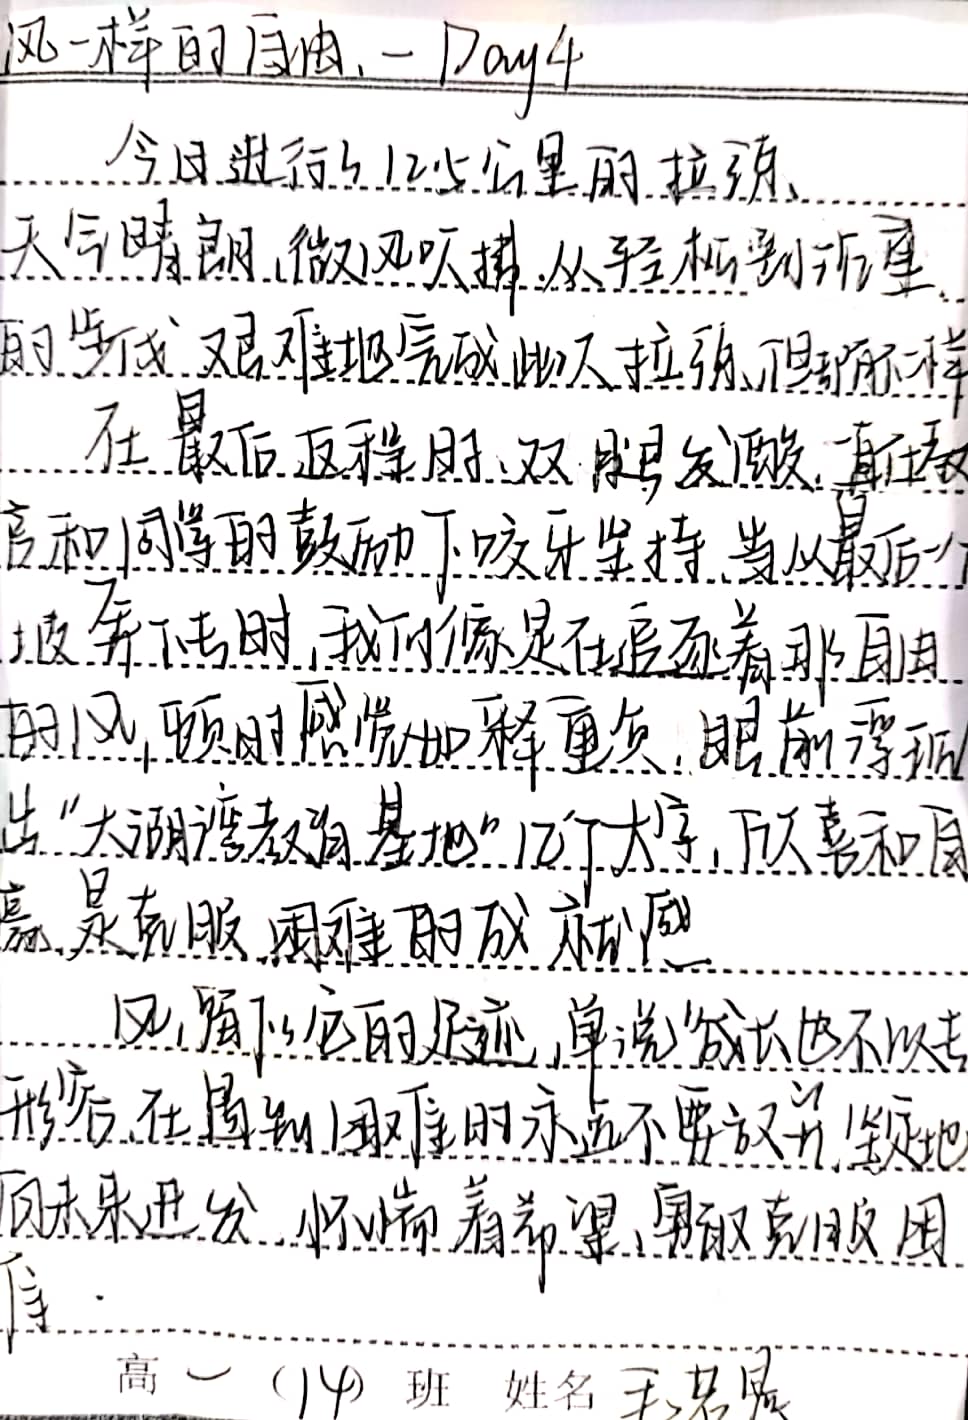 风一样的自由 - Day4
今日进行了12.5公里的拉练、
天气晴朗、微风吹拂、从轻松到沉重
的步伐 艰难地完成此次拉练、但 一样
在最后返程时、双腿发酸、在教
官和同学的鼓励下咬牙坚持、当从最后一个
坡奔下去时、我们像是在追逐着那自由
的风,顿时感觉如释重负、眼前浮现
出"大湖湾教育基地"几个大字,欣喜和自
豪、是克服困难的成就感
风,留下以它的足迹,单说"成长也不以去
形容、在遇到困难时永远不要放弃,坚定地
向未来进发、怀揣着希望、勇敢克服困
难.
高一(14)班 姓名 王